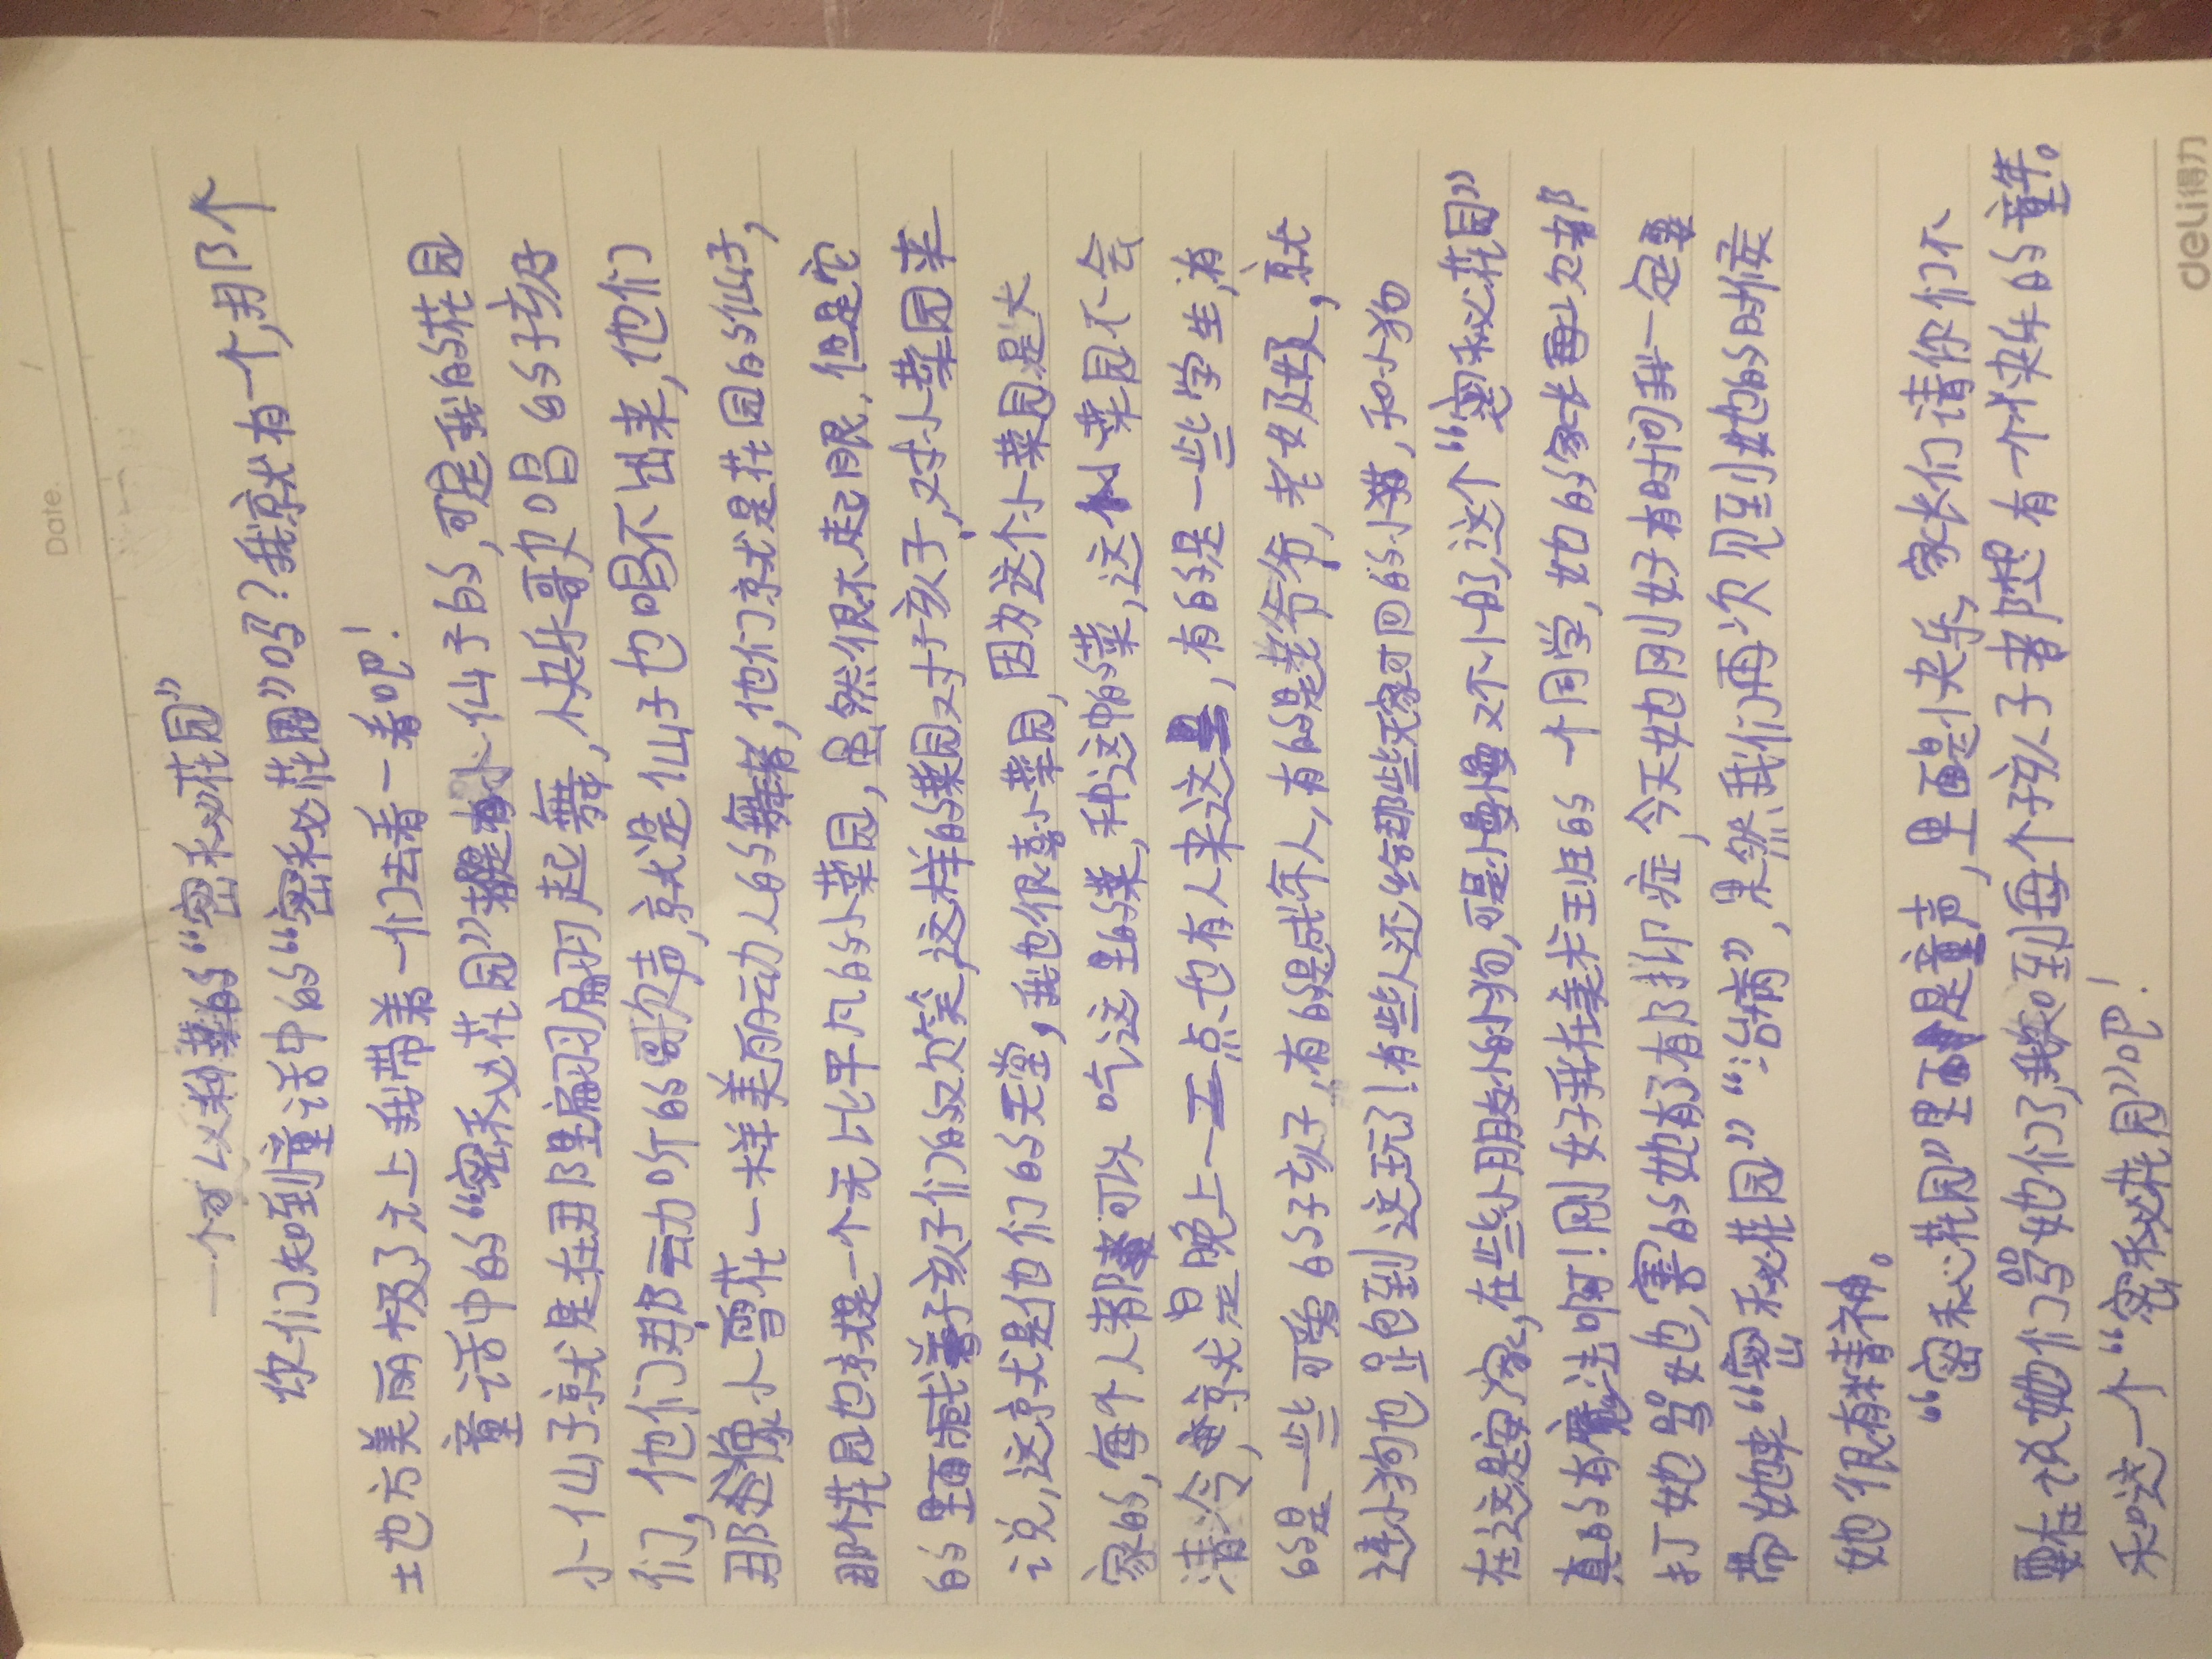 Date.
一个可以种菜的“密秘花园”
你们知到童话中的“密秘花园”吗?我就有一个,那个
地方美丽极了元上我带弟一们去看一看吧!
童话中的“密秘花园”都是有小仙子的,可是我的花园
小仙子就是在那里扇羽扇羽起舞,快乐歌欠唱的子孩子
们,他们那动听的歌欠声,就是仙子也唱不出来,他们
那像小雪花一样美丽动人的舞者,他们就是花园的仙子,
那个花园也就是一个无比平凡的小菜园,虽然很不起眼,但是它
的里面有孩子们的欢笑,这样的菜园对于孩子,对小菜园来
说,这就是他们的天堂,我也很喜小菜园,因为这个小菜园是大
家的,每个人都可以吃这里的菜,种这中的菜,这个小菜园不会
清冷,就是晚上一二点也有人来这里,有的是一些学生,有
的是一些可爱的子孩子,有的是成年人,有的是老爷爷,老奶奶,就
连小狗也跑到这玩了!有些人还给那些家可回的小猫,和小狗
在这是安家,在些小朋友小的小狗,可是小慢慢又不小的了,这个“密秘花园”
真的有魔法啊!刚好我在美术班的一个同学,她的家长再次都
打她骂她,害的她有了有抑症,今天她刚好有时间我一定要
带她来“密秘花园”“治病”,果然我们再次见到她的时侯
她很有精神。
“密秘花园”里是童声,里面是小夹乐,家长们请你们不
要在说她们骂她们了,我知到每个孩子者都想有一个快乐的童年。
和这一个“密秘花园”吧!
deli得力